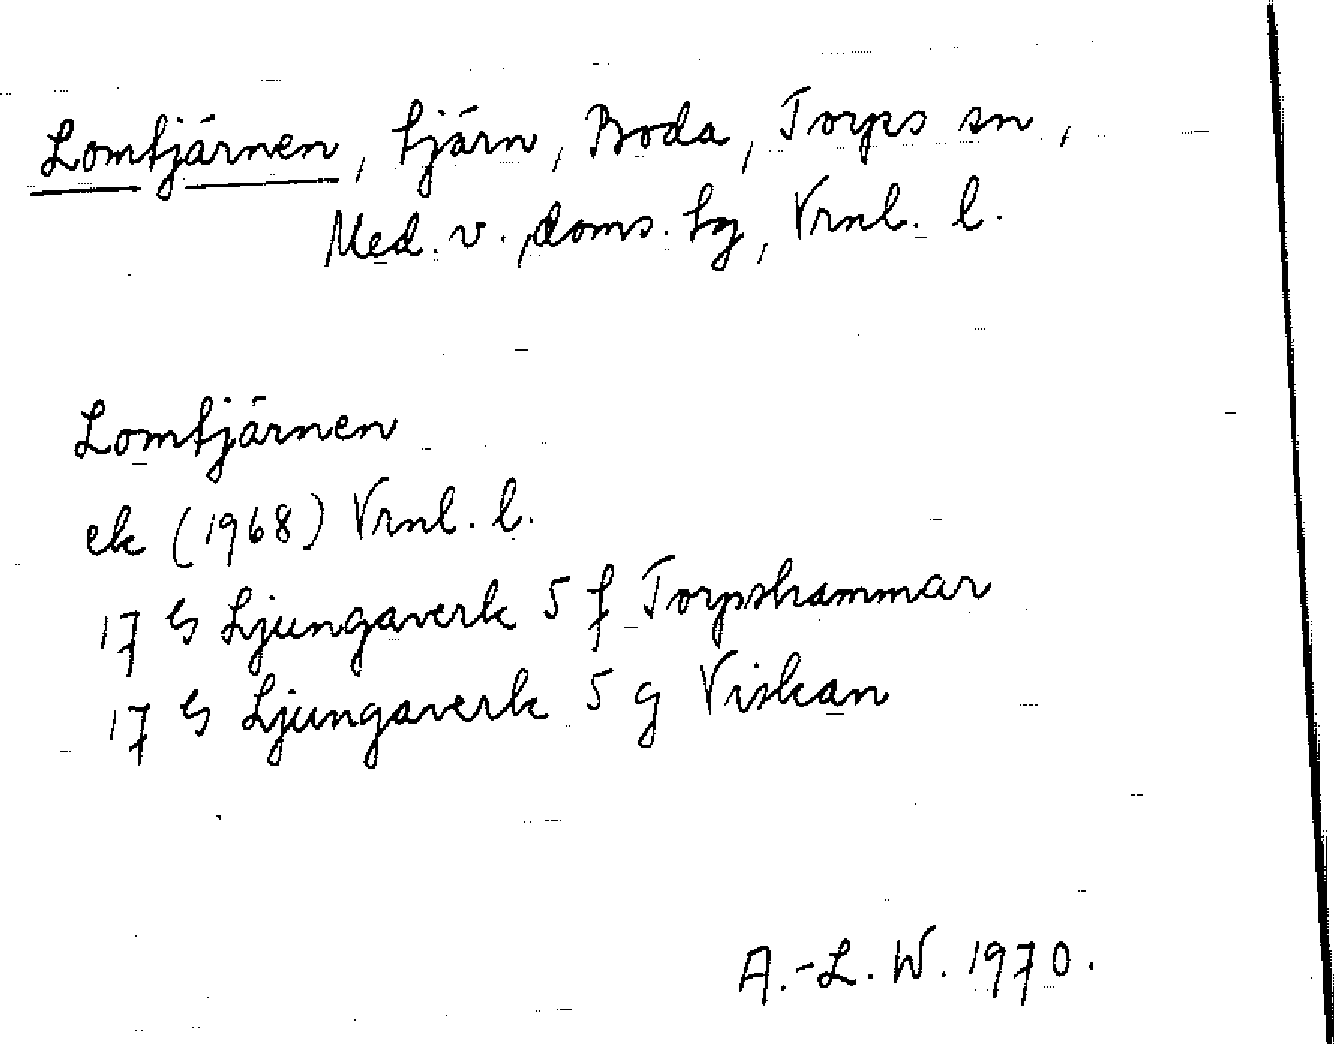 Lomtjärnen, tjärn, Boda, Torps sn,
Med. v. doms. tg, Vrnl. l.
Lomtjärnen
ek (1968) Vrnl. l.
17 G Ljungaverk 5 f Torpshammar
17 G Ljungaverk 5 g Viskan
A.-L. W. 1970.